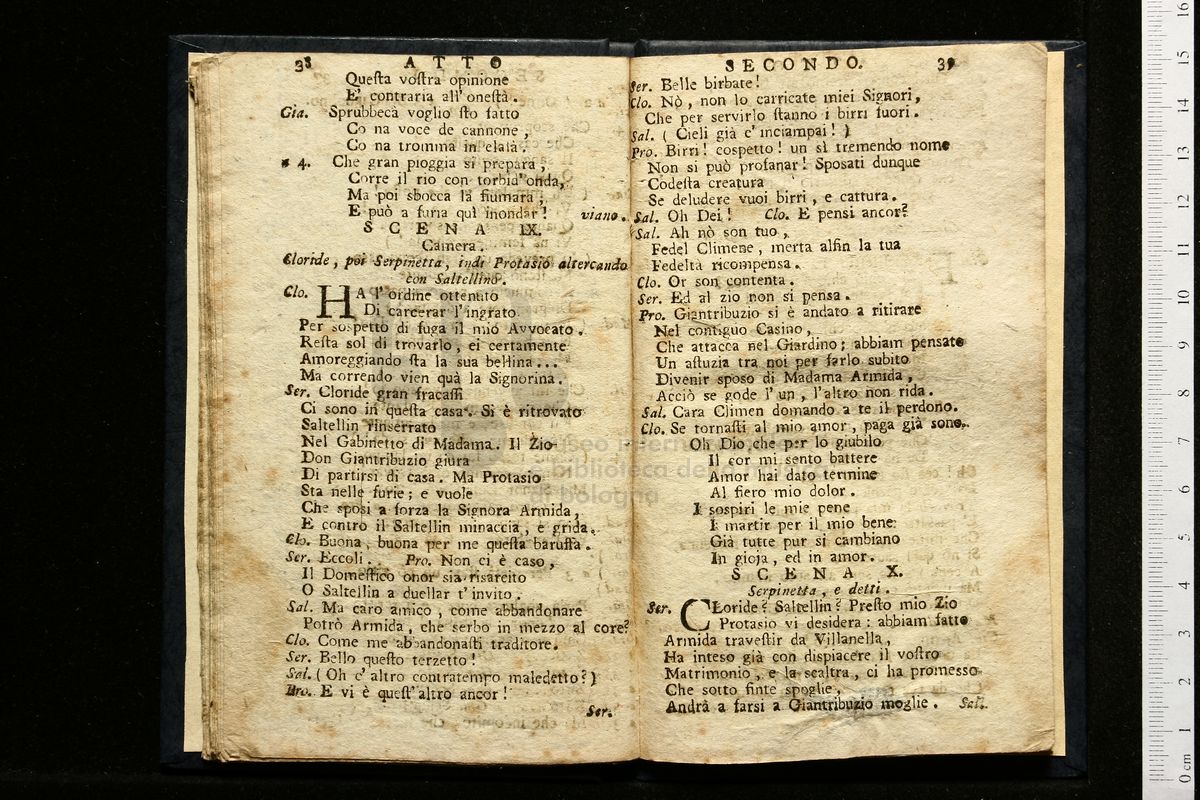 38 ATTO
Queſta voſtra opinione
E' contraria all' oneſtà.
Gia. Sprubbecà voglio ſto fatto
Co na voce de cannone,
Co na tromma in elaia.
a 4. Che gran pioggia si prepara,
Corre il rio con torbid' onda,
Ma poi sbocca la fiumara,
E può a furia quì inondar! viano.
SCENA IX.
Camera.
Cloride, poi Serpinetta, indi Protasio altercando
con Saltellino.
Clo. HA l' ordine ottenuto
Di carcerar l' ingrato
Per sospetto di fuga il mio Avvocato.
Reſta sol di trovarlo, ei certamente
Amoreggiando ſta la sua bellina...
Ma correndo vien quà la Signorina.
Ser. Cloride gran fracaſſi
Ci sono in queſta casa. Si è ritrovato
Saltellin rinserrato
Nel Gabinetto di Madama. Il Zio
Don Giantribuzio giura
Di partirsi di casa. Ma Protasio
Sta nelle furie; e vuole
Che sposi a forza la Signora Armida,
E contro il Saltellin minaccia, e grida.
Clo. Buona, buona per me queſta baruffa.
Ser. Eccoli. Pro. Non ci è caso,
Il Domeſtico onor sia risarcito
O Saltellin a duellar t' invito.
Sal. Ma caro amico, come abbandonare
Potrò Armida, che serbo in mezzo al core?
Clo. Come me abbandonaſti traditore.
Ser. Bello queſto terzetto!
Sal. (Oh c' altro contratempo maledetto?)
Pro. E vi è queſt' altro ancor!
Ser.
SECONDO. 39
Ser. Belle birbate!
Clo. Nò, non lo carricate miei Signori,
Che per servirlo ſtanno i birri fuori.
Sal. (Cieli già c' inciampai!)
Pro. Birri! cospetto! un sì tremendo nome
Non si può profanar! Sposati dunque
Codeſta creatura
Se deludere vuoi birri, e cattura.
Sal. Oh Dei! Clo. E pensi ancor?
Sal. Ah nò son tuo,
Fedel Climene, merta alfin la tua
Fedeltà ricompensa.
Clo. Or son contenta.
Ser. Ed al zio non si pensa.
Pro. Giantribuzio si è andato a ritirare
Nel contiguo Casino,
Che attacca nel Giardino; abbiam pensato
Un aſtuzia tra noi per farlo subito
Divenir sposo di Madama Armida,
Acciò se gode l' un, l' altro non rida.
Sal. Cara Climen domando a te il perdono.
Clo. Se tornaſti al mio amor, paga già sono.
Oh Dio che per lo giubilo
Il cor mi sento battere
Amor hai dato termine
Al fiero mio dolor.
I sospiri le mie pene
I martir per il mio bene
Già tutte pur si cambiano
In gioja, ed in amor.
SCENA X.
Serpinetta, e detti.
Ser. CLoride? Saltellin? Preſto mio Zio
Protasio vi desidera: abbiam fatto
Armida traveſtir da Villanella,
Ha inteso già con dispiacere il voſtro
Matrimonio, e la scaltra, ci ha promesso
Che sotto finte spoglie,
Andrà a farsi a Giantribuzio moglie. Sal.